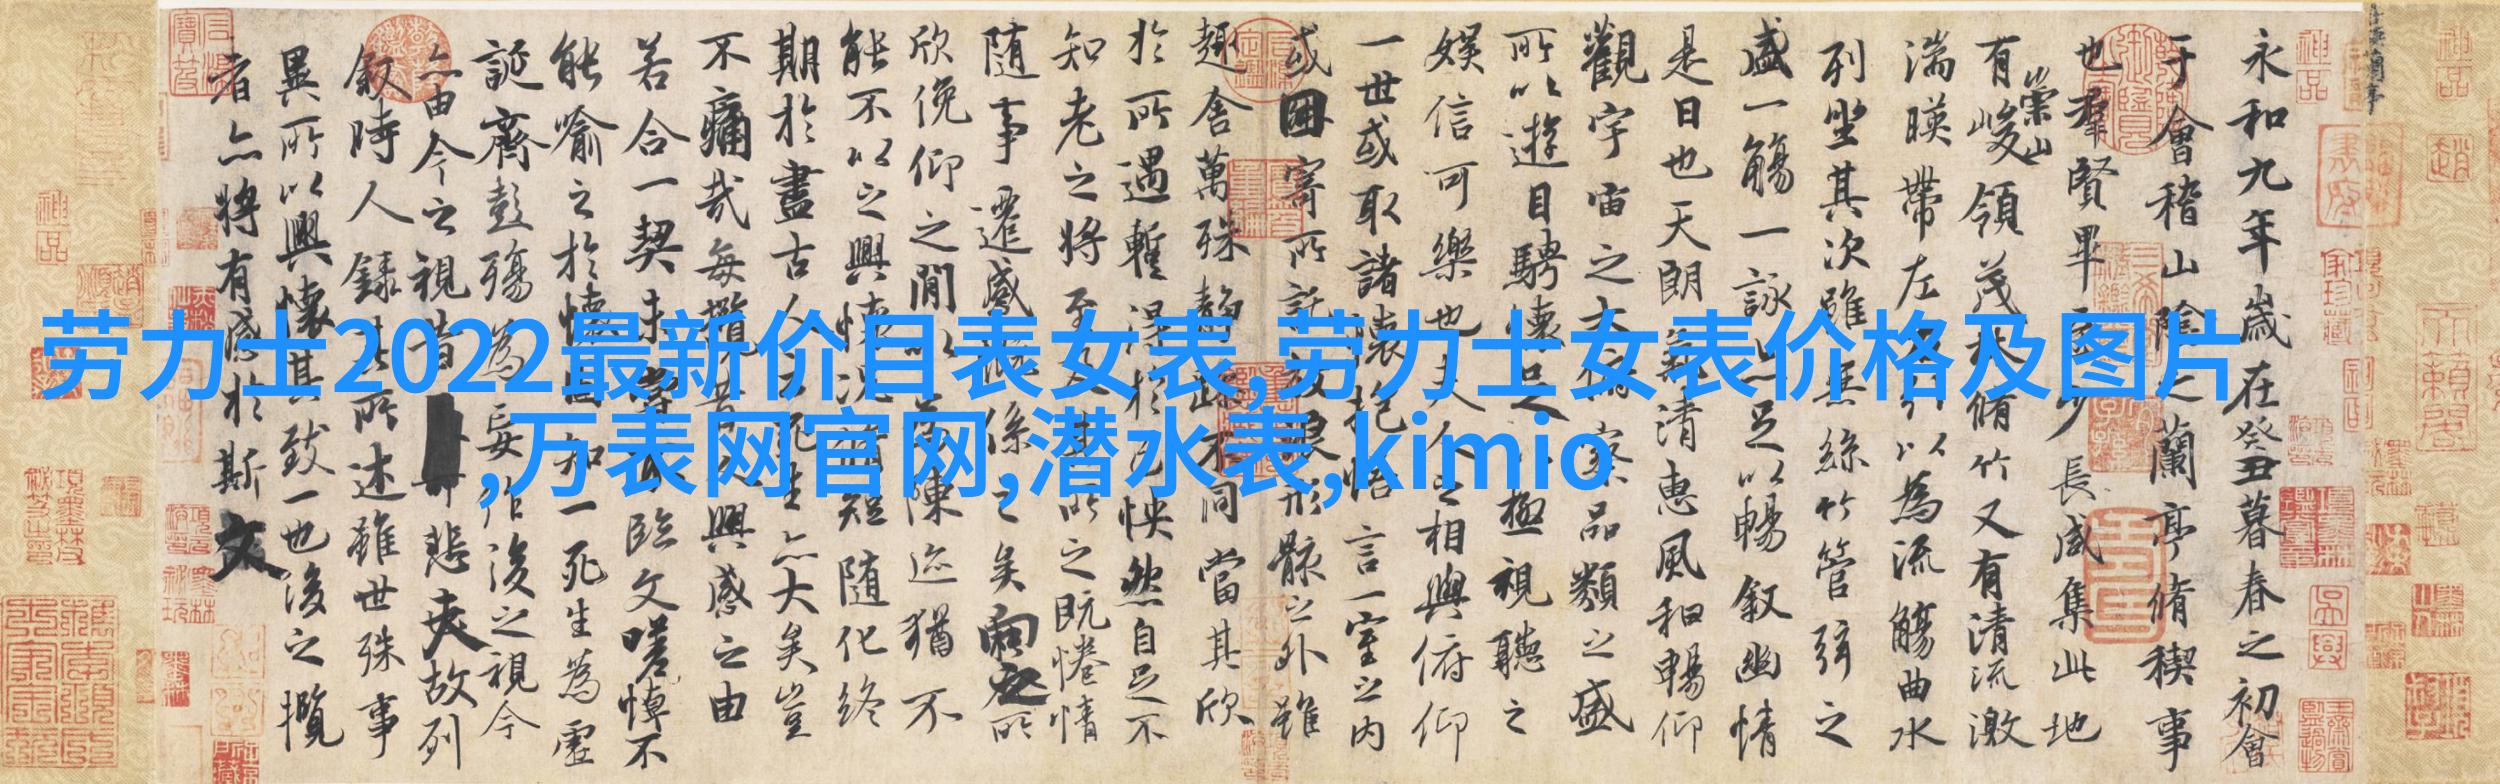 劳力士2022最新价目表女表,劳力士女表价格及图片
,万表网官网,潜水表,kimio
永和九年歲在癸丑暮春之初會
于會稽山陰之蘭亭脩稧事
也羣賢畢至少長咸集此地
有崇山峻領茂林脩竹又有清流激
湍暎帶左右引以為流觴曲水
列坐其次雖無絲竹管弦之
盛一觴一詠亦足以暢敘幽情
是日也天朗氣清惠風和暢仰
觀宇宙之大俯察品類之盛
所以遊目騁懷足以極視聽之
娛信可樂也夫人之相與俯仰
一世或取諸懷抱悟言一室之內
或因寄所託放浪形骸之外雖
趣舍萬殊靜躁不同當其欣
於所遇暫得於己怏然自足不
知老之將至及其所之既惓情
隨事遷感慨係之矣向之所
欣俛仰之閒以為陳迹猶不
能不以之興懷況脩短隨化終
期於盡古人云死生亦大矣豈
不痛哉每攬昔人興感之由
若合一契未嘗不臨文嗟悼不
能喻之於懷固知一死生為虛
誕齊彭殤為妄作後之視今
亦由今之視昔悲夫故列
敘時人錄其所述雖世殊事
異所以興懷其致一也後之攬
者亦將有感於斯文